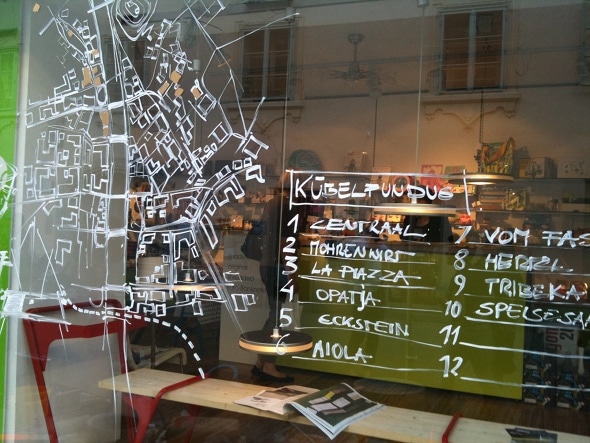 KÜBELFUNDUS
1 ZENTRAAL
2 MOHRENWIRT
3 LA PIAZZA
4 OPATJA
5 ECKSTEIN
6 AIOLA
7 VOM FAS
8 HEBEL
9 TRIBEKA
10 SPEISESAA
11
12